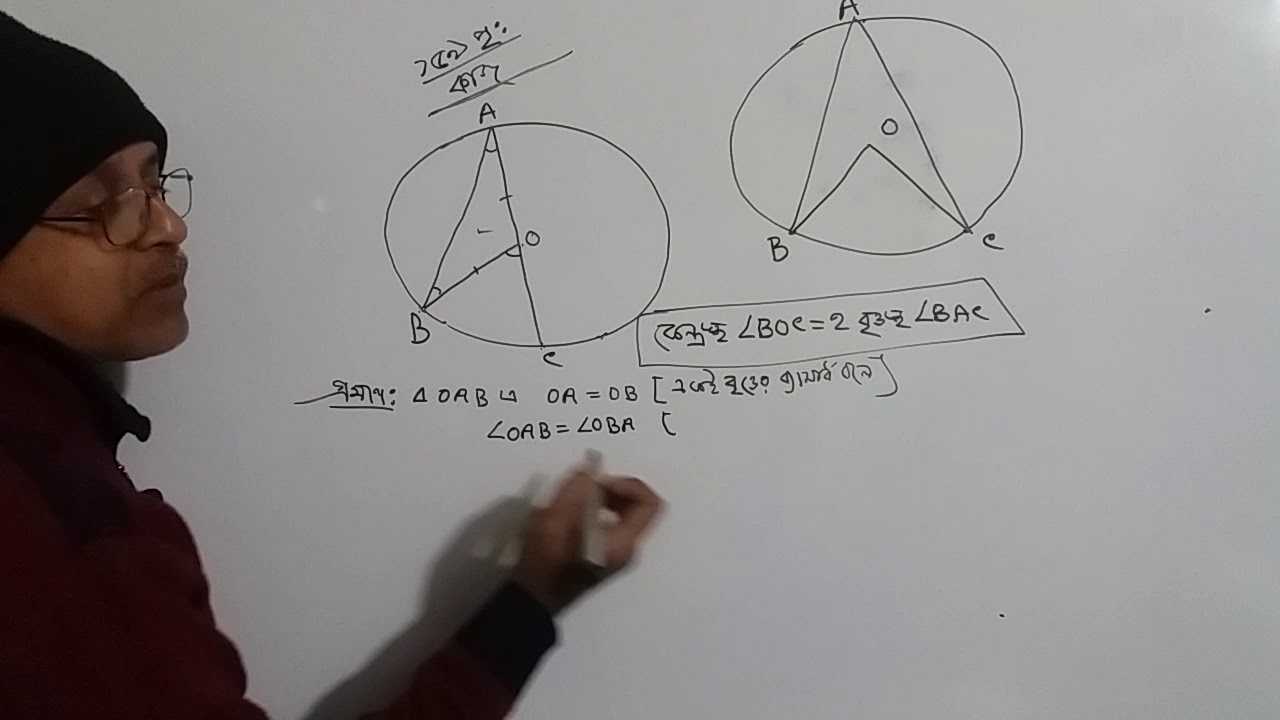 A
A
O
O
B
C
B
C
কেন্দ্রস্থ ∠BOC = 2 বৃত্তস্থ ∠BAC
প্রমাণ: Δ OAB এ OA = OB [ একই বৃত্তের ব্যাসার্ধ বলে ]
∠OAB = ∠OBA [